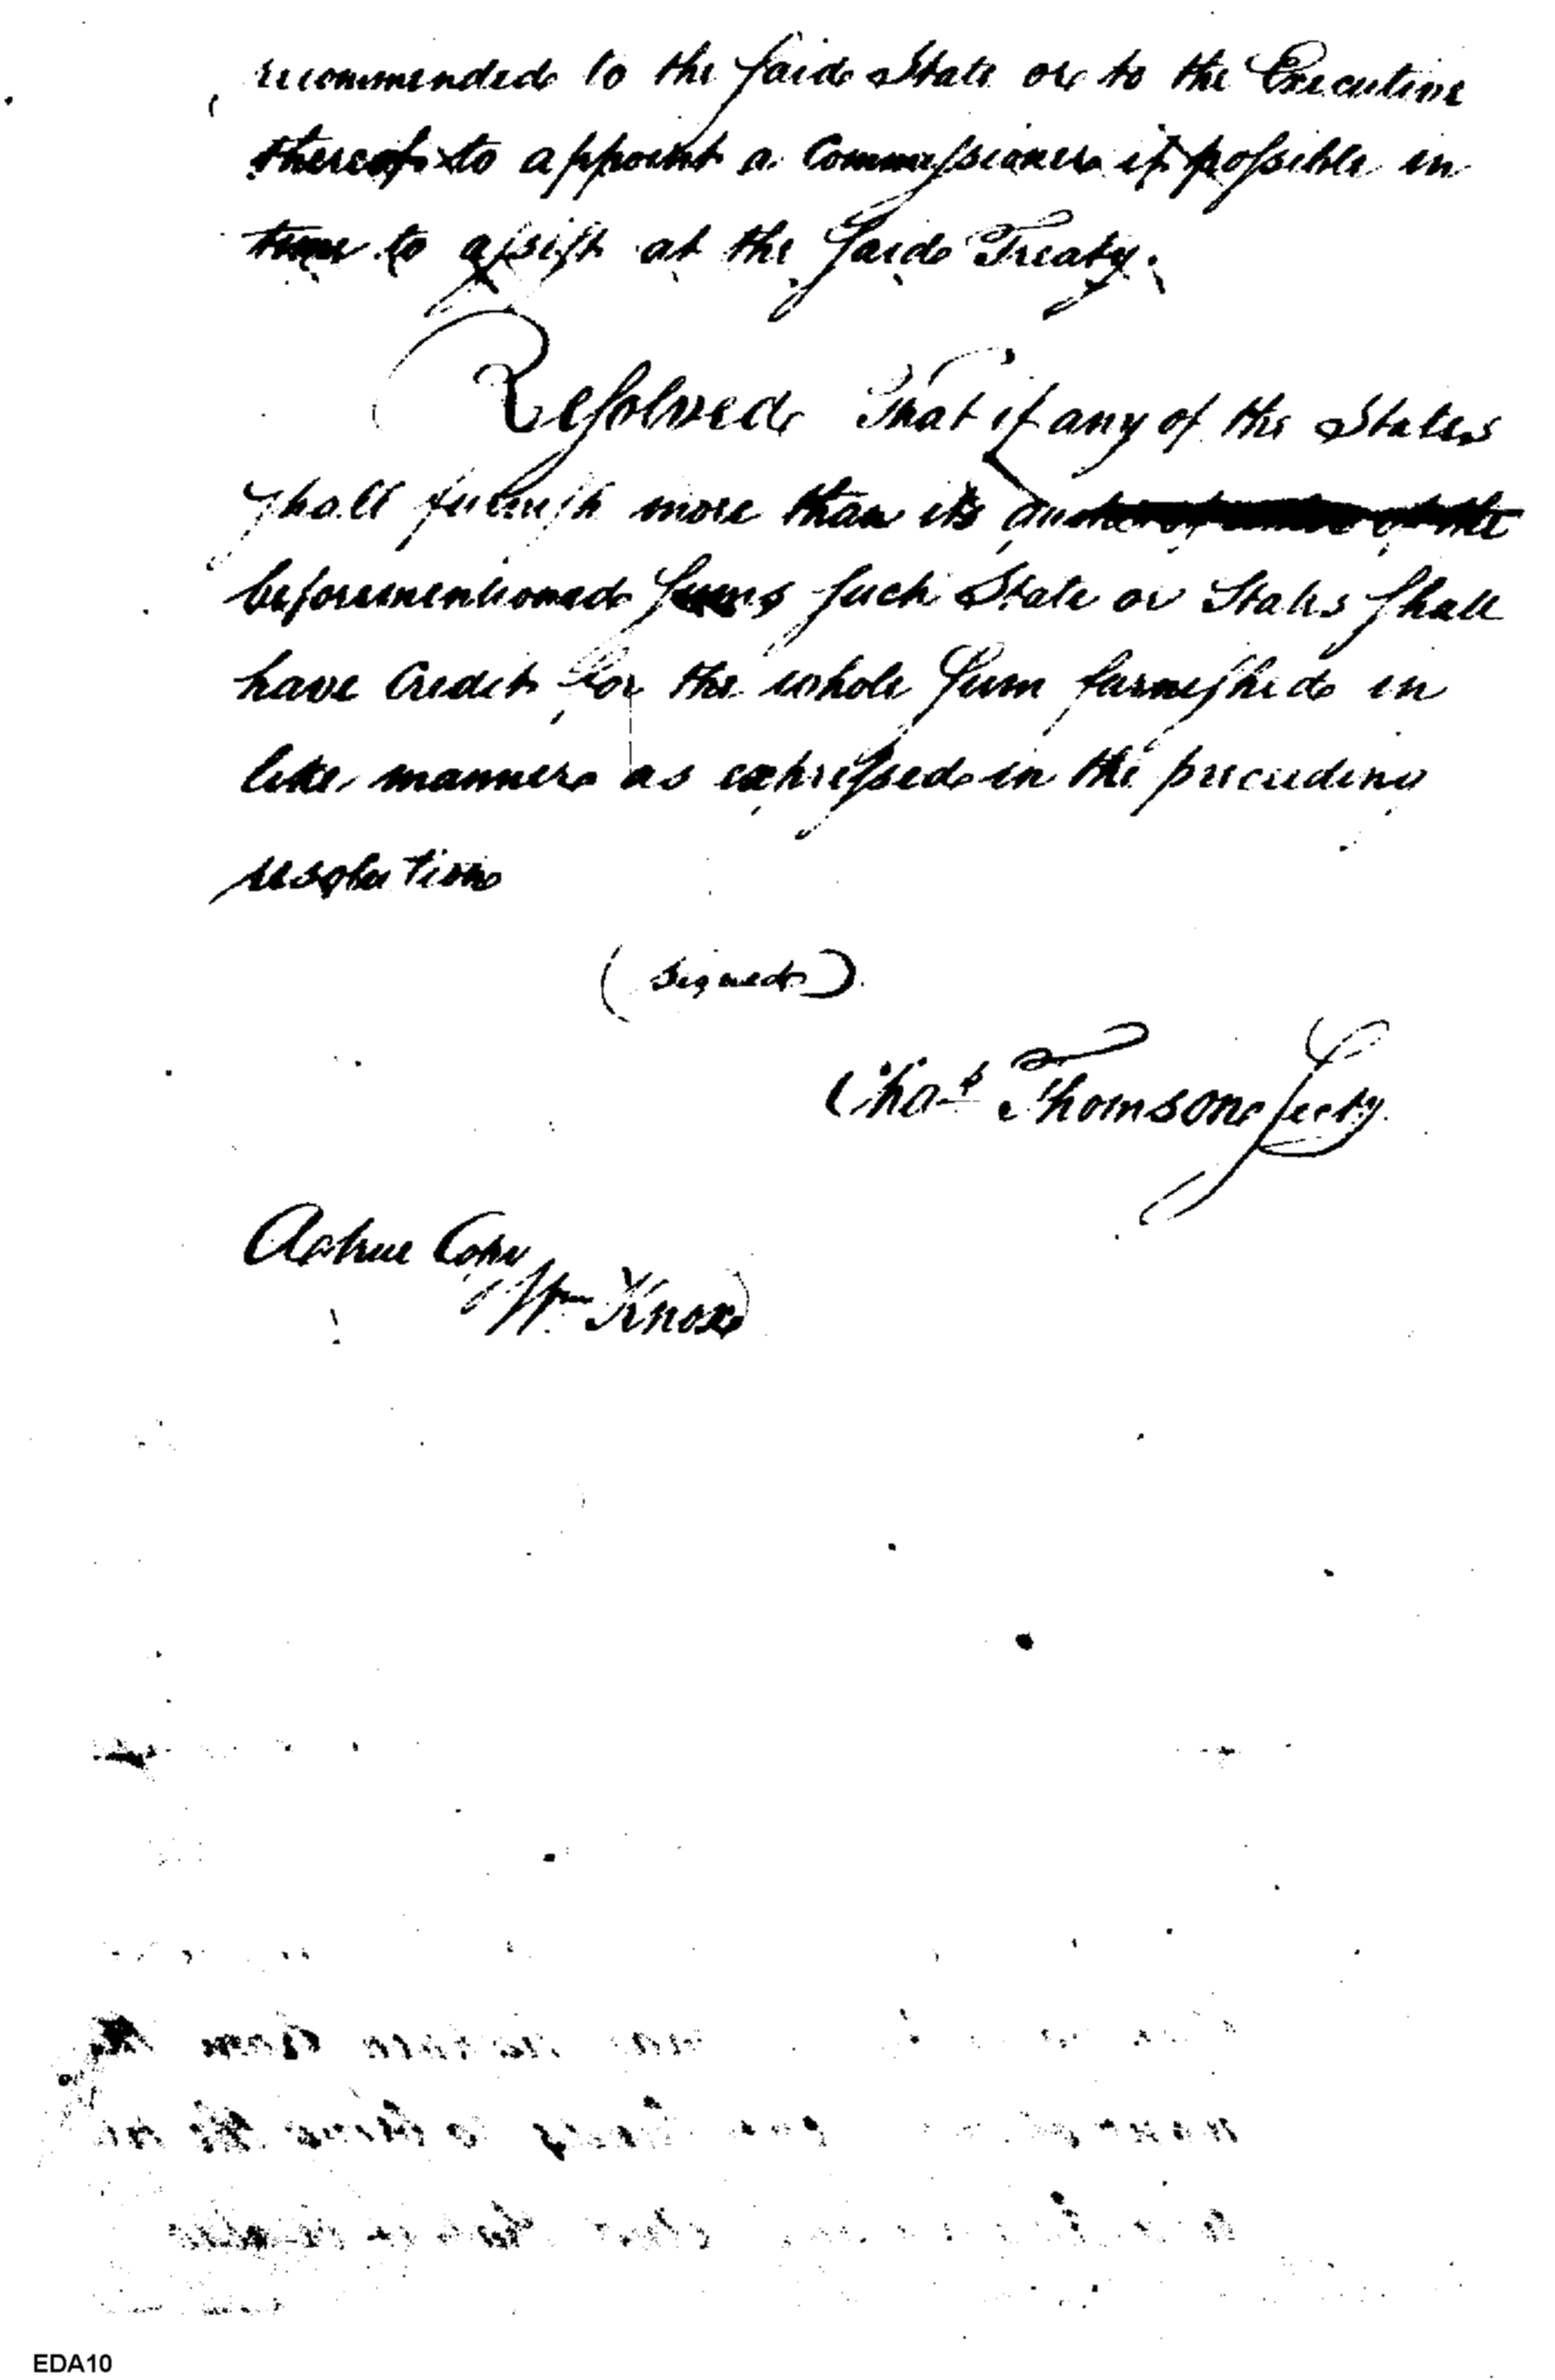 recommended to the said State or to the Executive
thereof to appoint a Commissioner if possible in
time to assist at the said Treaty.
Resolved That if any of the States
shall furnish more than its quota of
beforementioned sums such State or States shall
have Credit for the whole sum furnished in
like manner as expressed in the preceeding
resolution
(signed)
Chas Thomson Secty
A true Copy
Wm Knox
EDA10